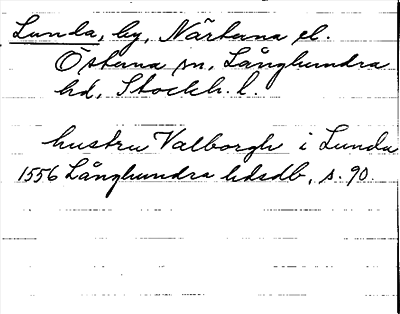 Lunda, by, Närtuna el.
Östuna sn, Långhundra
hd, Stockh. l.
hustru Valborgh i Lunda
1556 Långhundra hdsdb, s. 90.